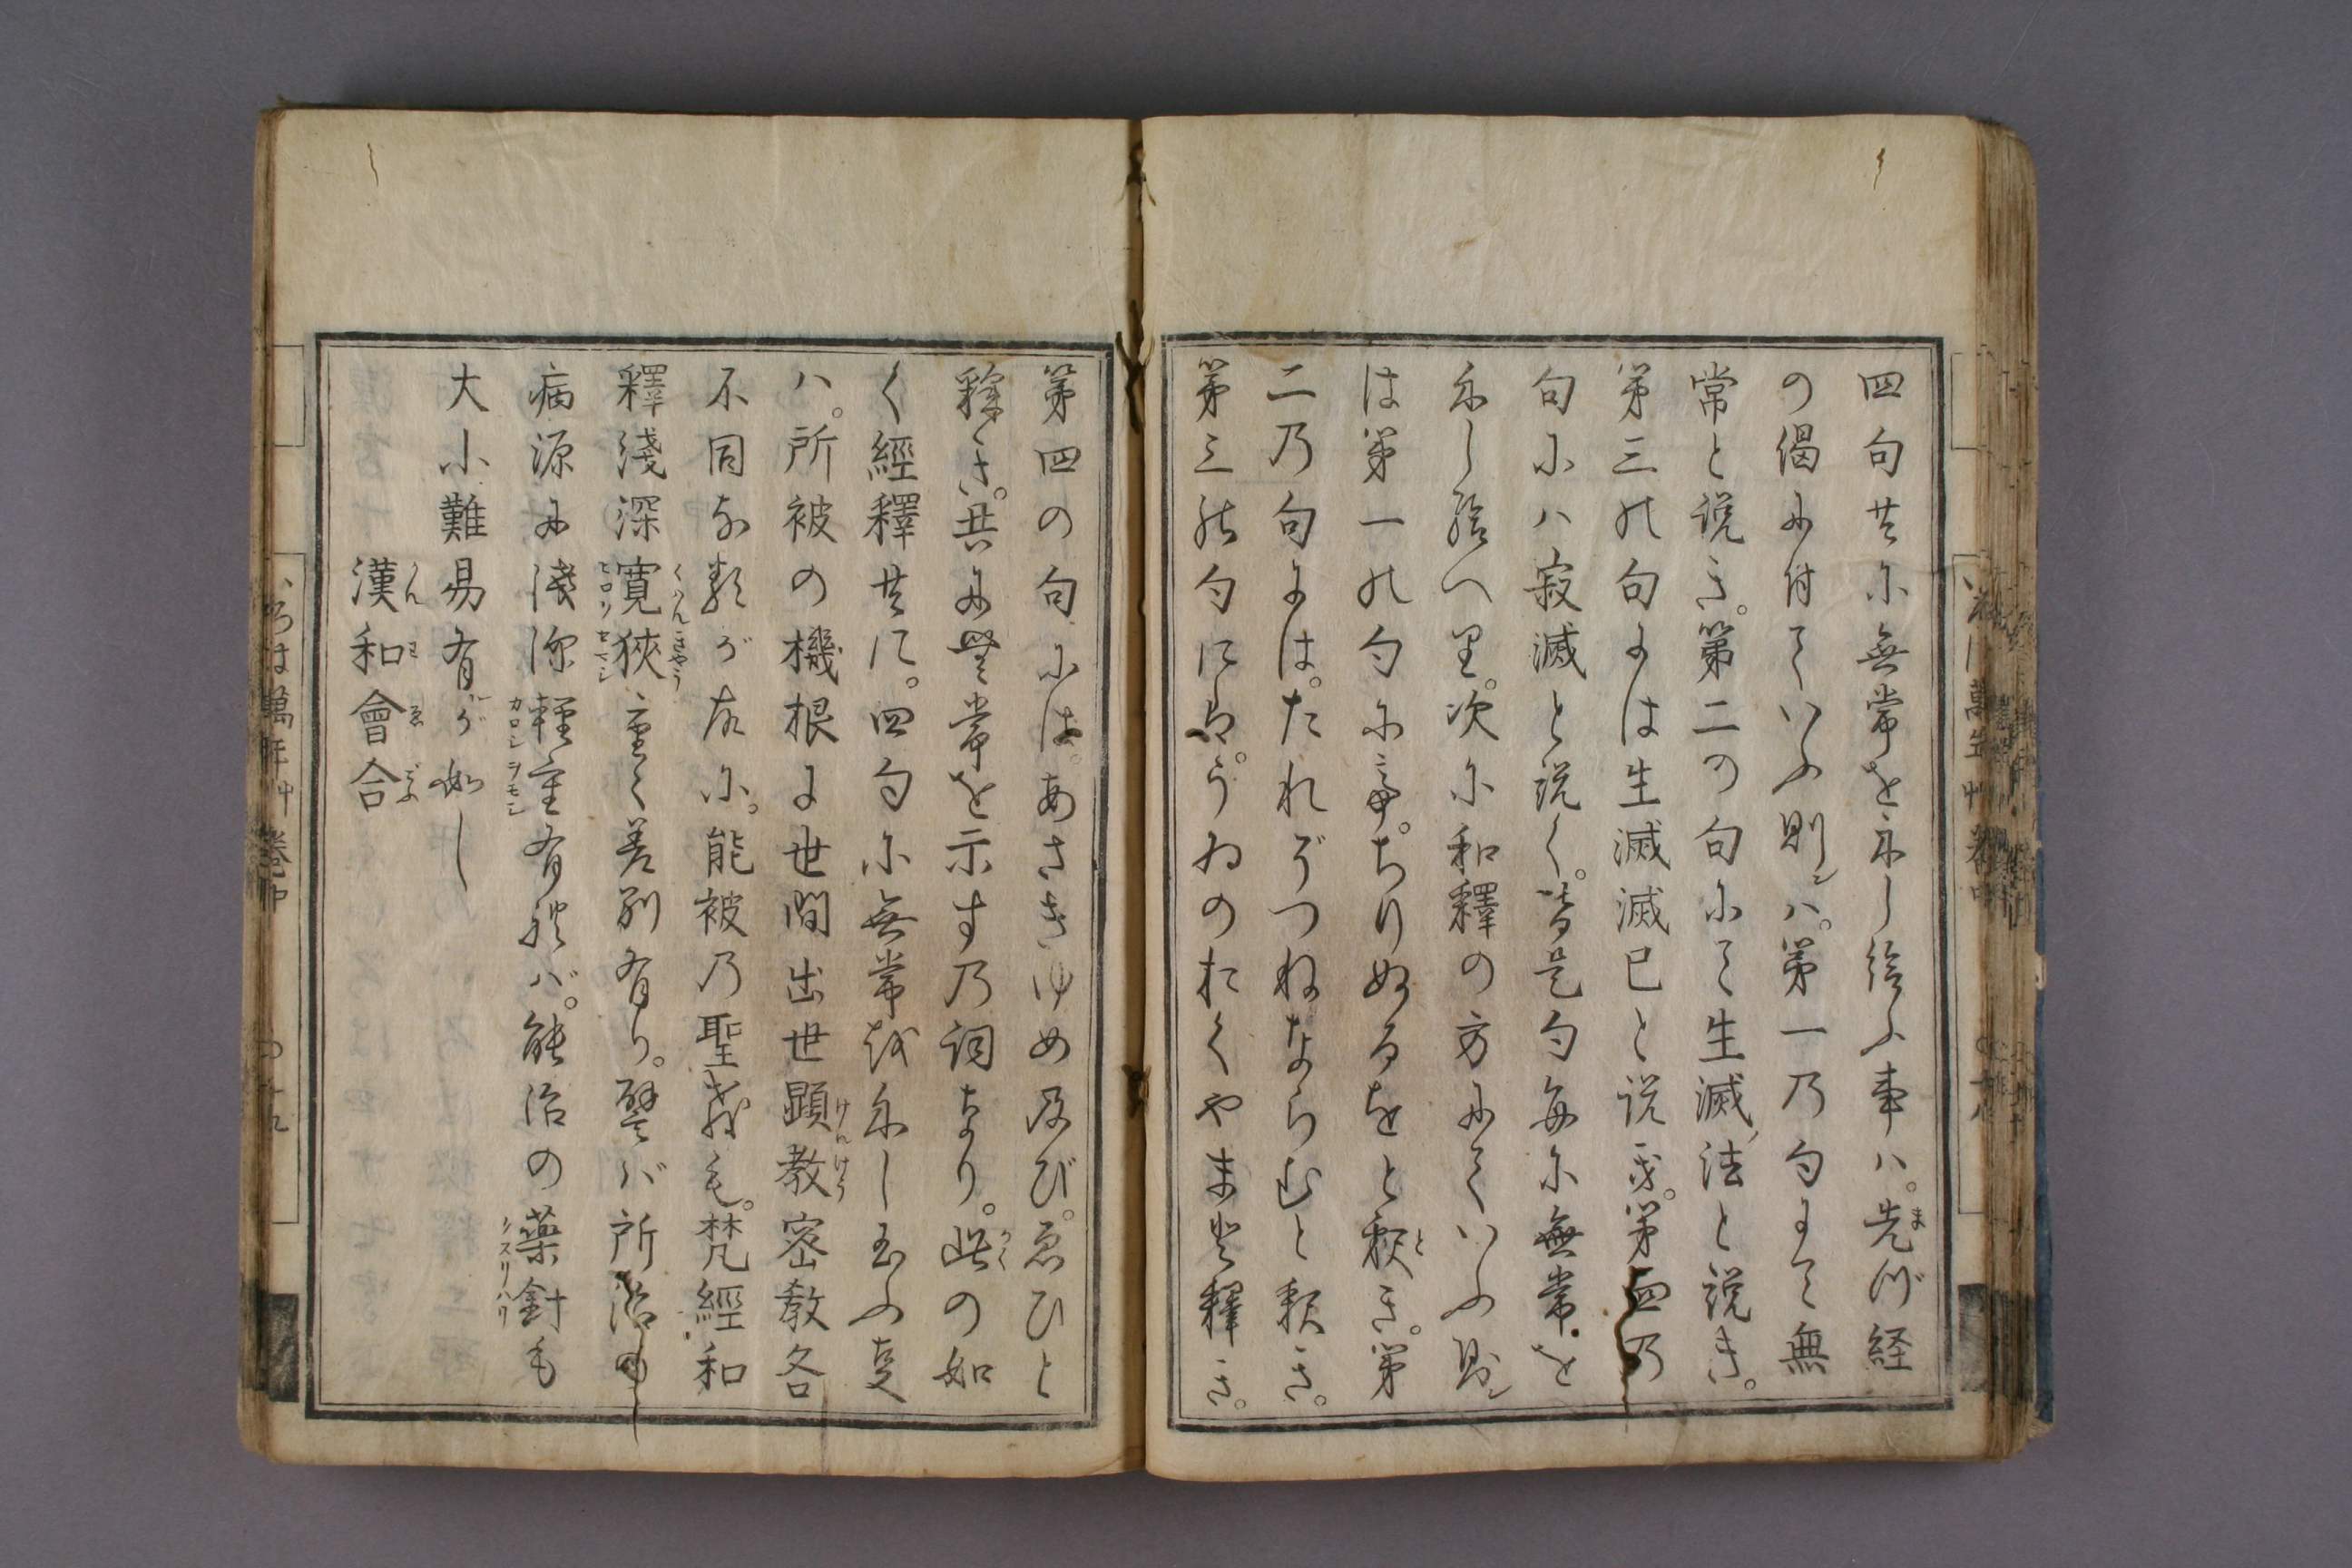 四句共に無常を示し給ふ事ハ。先づ経
の偈に付ていふ則ンハ。第一乃句にて無
常と説き。第二の句にて生滅ノ法と説き。
第三の句には生滅滅已と説き。第四乃
句にハ寂滅と説く。皆是句毎に無常を
示し給へり。次に和釋の方にていふ則ン
は第一の句に。ちりぬるをと釈き。第
二乃句には。たれぞつねならむと釈き。
第三の句にハ。うゐのおくやまと釋き。
第四の句には。あさきゆめ及び。ゑひと
釋き。共に無常を示す乃詞なり。此の如
く經釋共に。四句に無常を示し玉ふ事
ハ。所被の機根に世間出世顕教密教各
不同な類が故に。能被乃聖教も。梵經和
釋淺深寛狹重々差別有り。譬バ所治の
病源に淺深軽重有れバ。能治の薬針も
大小難易有ルが如し
漢和會合
いろは萬年艸 巻中